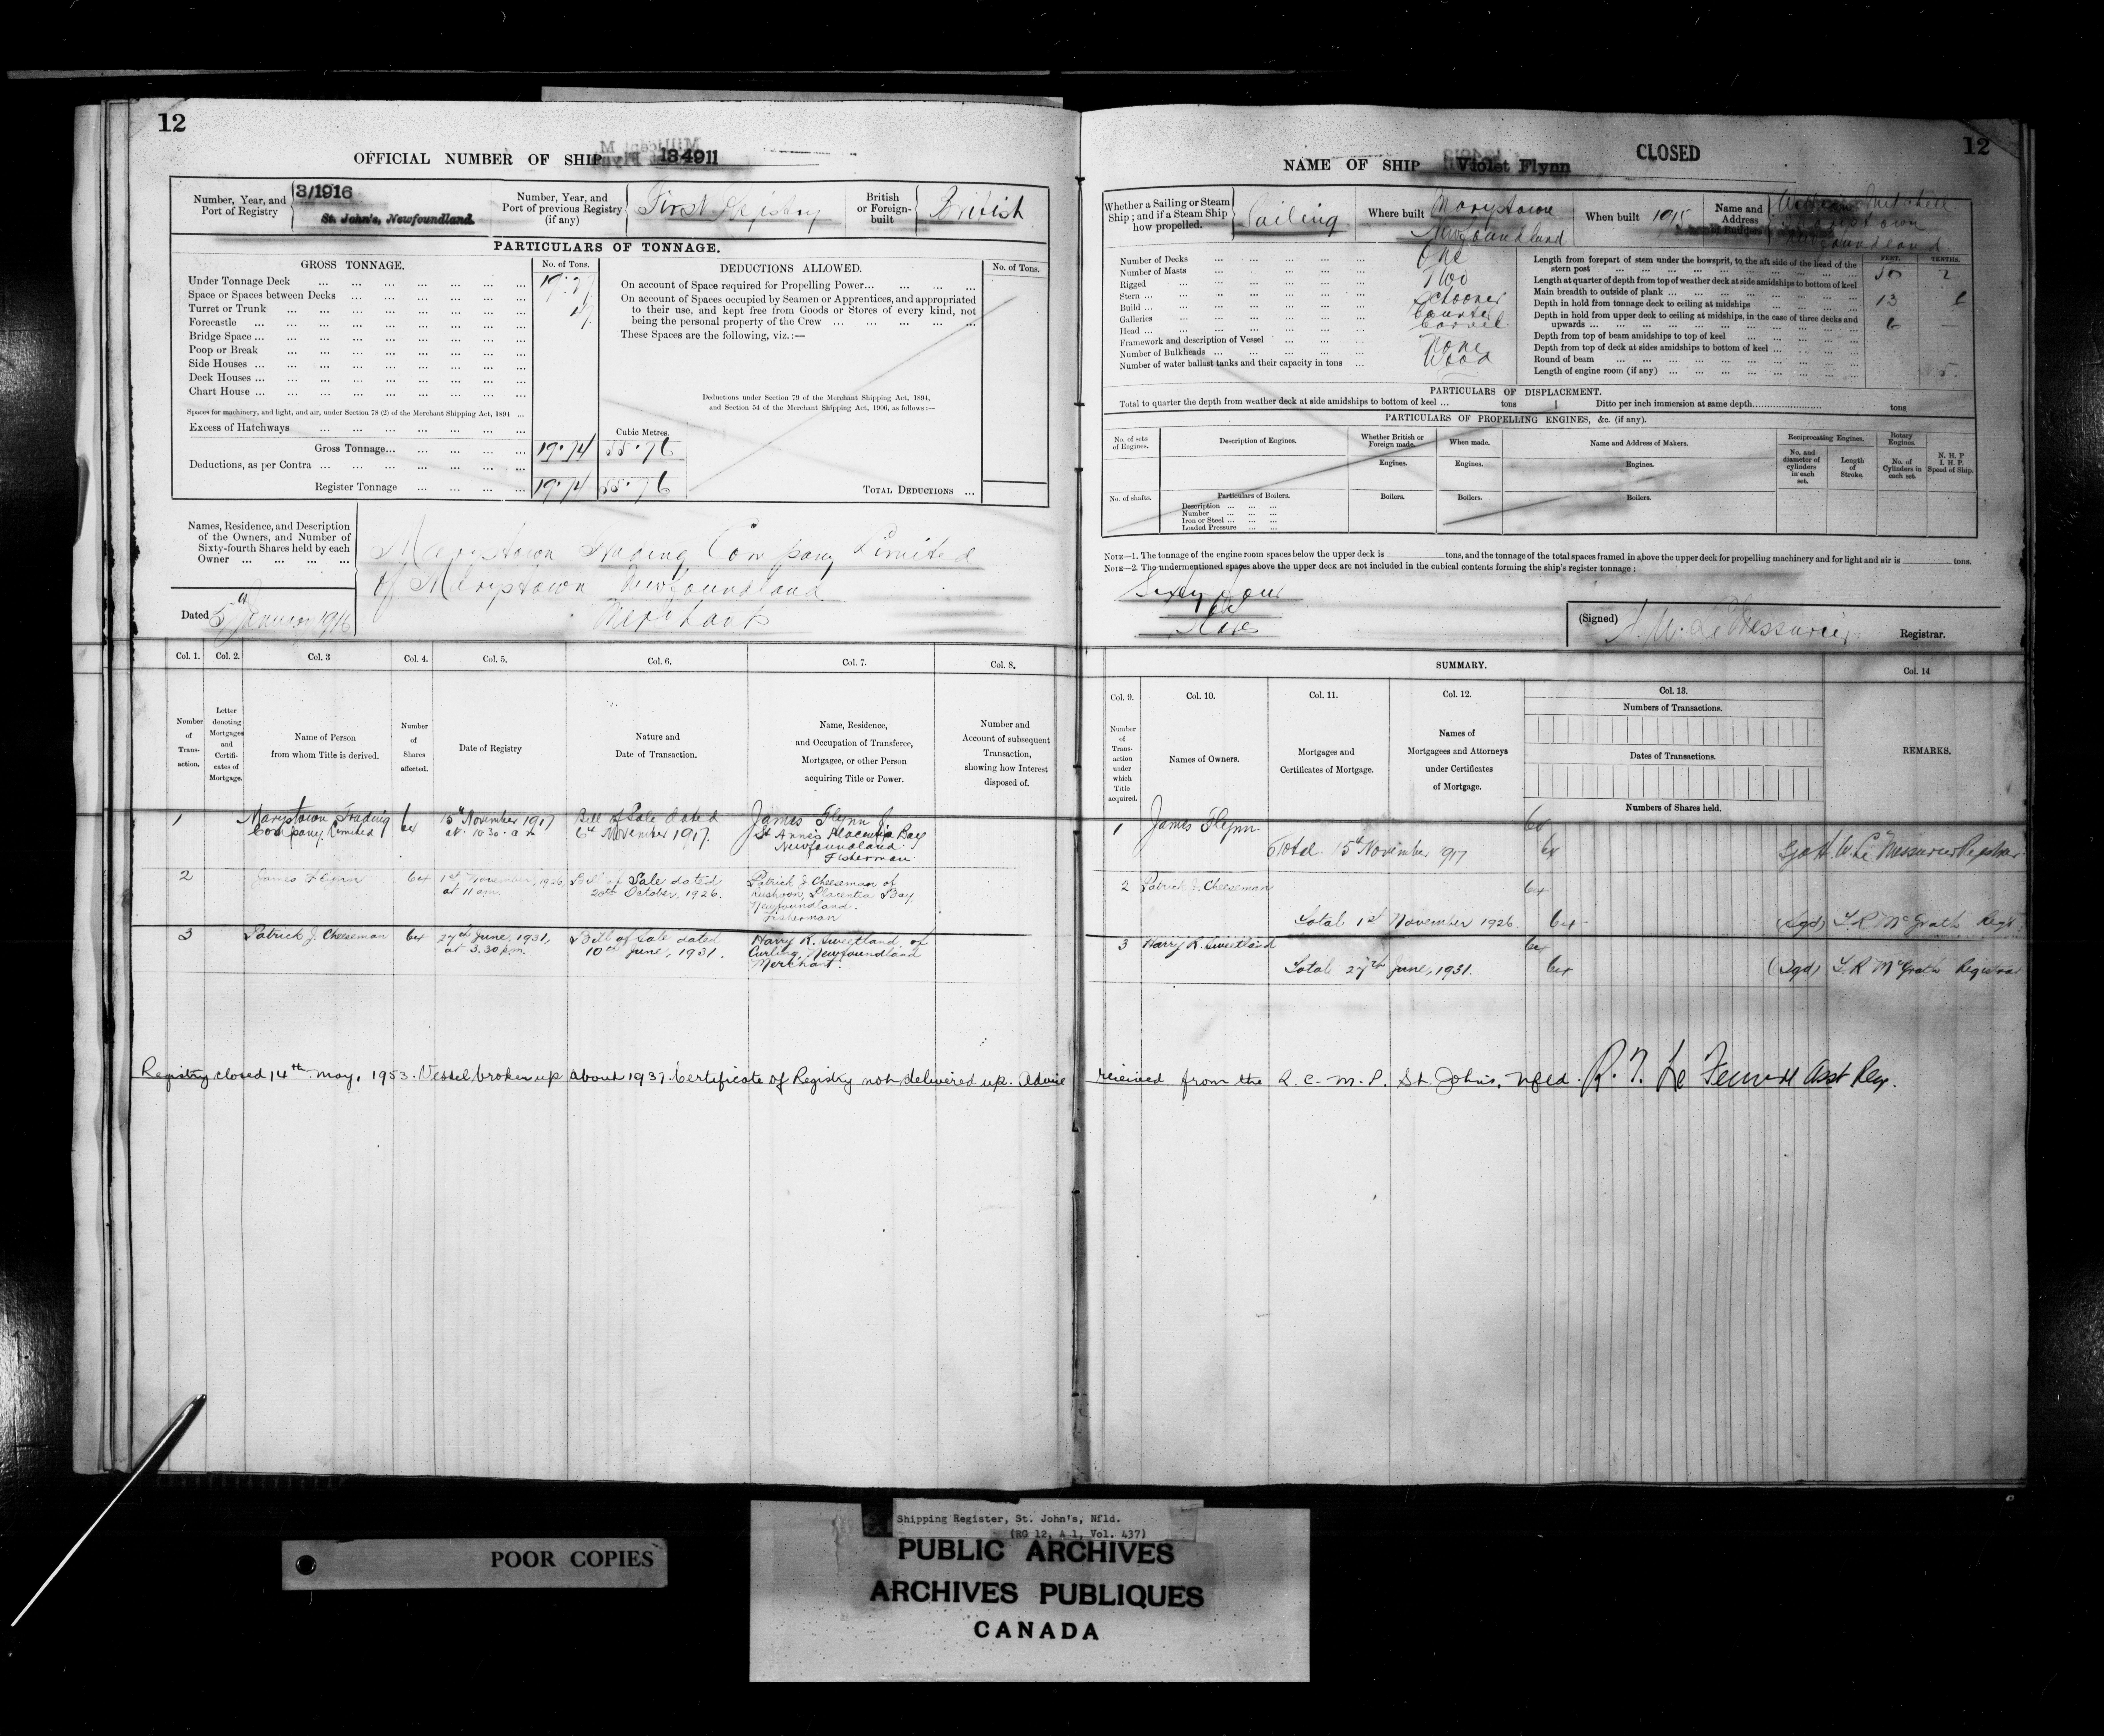 12
OFFICIAL NUMBER OF SHIP 134911
Number, Year, and Port of Registry
3/1916
St. John's, Newfoundland.
Number, Year, and Port of previous Registry (if any)
First Registry
British or Foreign-built
British
PARTICULARS OF TONNAGE.
GROSS TONNAGE.
No. of Tons.
DEDUCTIONS ALLOWED.
No. of Tons.
Under Tonnage Deck
Space or Spaces between Decks
Turret or Trunk
Forecastle
Bridge Space
Poop or Break
Side Houses
Deck Houses
Chart House
Spaces for machinery, and light, and air, under Section 78 (2) of the Merchant Shipping Act, 1894
Excess of Hatchways
Cubic Metres.
Gross Tonnage... 19.74 55.76
Deductions, as per Contra
Register Tonnage 19.74 55.76
On account of Space required for Propelling Power
On account of Spaces occupied by Seamen or Apprentices, and appropriated
to their use, and kept free from Goods or Stores of every kind, not
being the personal property of the Crew
These Spaces are the following, viz.:—
Deductions under Section 79 of the Merchant Shipping Act, 1894,
and Section 54 of the Merchant Shipping Act, 1906, as follows:—
TOTAL DEDUCTIONS
Names, Residence, and Description
of the Owners, and Number of
Sixty-fourth Shares held by each
Owner
Marystown Trading Company Limited
of Marystown Newfoundland
Dated 5th January 1916
Col. 1. Col. 2. Col. 3 Col. 4. Col. 5. Col. 6. Col. 7. Col. 8.
Number of Transaction.
Letter denoting Mortgages and Certificates of Mortgage.
Name of Person from whom Title is derived.
Number of Shares affected.
Date of Registry
Nature and Date of Transaction.
Name, Residence, and Occupation of Transferee, Mortgagee, or other Person acquiring Title or Power.
Number and Account of subsequent Transaction, showing how Interest disposed of.
1 Marystown Trading Company Limited 64 15th November 1917 at 10.30 a.m. Bill of Sale dated 6th November 1917. James Flynn of St Anne's Placentia Bay Newfoundland Fisherman
2 James Flynn 64 1st November, 1926 at 11 a.m. Bill of Sale dated 20th October, 1926. Patrick J. Cheeseman of Rushoon, Placentia Bay, Newfoundland. Fisherman
3 Patrick J. Cheeseman 64 27th June, 1931, at 3.30 p.m. Bill of Sale dated 10th June, 1931. Harry R. Sweetland, of Curling, Newfoundland Merchant.
Registry closed 14th may, 1953. Vessel broken up about 1937. Certificate of Registry not delivered up. Advice
12
NAME OF SHIP Violet Flynn
CLOSED
Whether a Sailing or Steam Ship; and if a Steam Ship how propelled.
Sailing
Where built
Marystown
Newfoundland
When built 1915
Name and Address of Builders
Marystown
Newfoundland
Number of Decks One
Number of Masts Two
Rigged Schooner
Stern
Build Carvel
Galleries
Head None
Framework and description of Vessel Wood
Number of Bulkheads
Number of water ballast tanks and their capacity in tons
FEET. TENTHS.
Length from forepart of stem under the bowsprit, to the aft side of the head of the
stern post 50 2
Length at quarter of depth from top of weather deck at side amidships to bottom of keel
Main breadth to outside of plank 13
Depth in hold from tonnage deck to ceiling at midships 6 —
Depth in hold from upper deck to ceiling at midships, in the case of three decks and
upwards
Depth from top of beam amidships to top of keel
Depth from top of deck at sides amidships to bottom of keel
Round of beam
Length of engine room (if any)
PARTICULARS OF DISPLACEMENT.
Total to quarter the depth from weather deck at side amidships to bottom of keel ... tons Ditto per inch immersion at same depth tons
PARTICULARS OF PROPELLING ENGINES, &c. (if any).
No. of sets of Engines.
Description of Engines.
Whether British or Foreign made.
When made.
Name and Address of Makers.
Reciprocating Engines.
Rotary Engines.
No. and diameter of cylinders in each set.
Length of Stroke.
No. of Cylinders in each set.
N. H. P
I. H. P.
Speed of Ship.
Engines. Engines. Engines.
No. of shafts.
Particulars of Boilers.
Boilers. Boilers. Boilers.
Description
Number
Iron or Steel
Loaded Pressure
NOTE—1. The tonnage of the engine room spaces below the upper deck is tons, and the tonnage of the total spaces framed in above the upper deck for propelling machinery and for light and air is tons.
NOTE—2. The undermentioned spaces above the upper deck are not included in the cubical contents forming the ship's register tonnage:
Sixty four
(Signed) H. W. LeMessurier
Registrar.
SUMMARY.
Col. 14
Col. 9. Col. 10. Col. 11. Col. 12. Col. 13.
Number of Transaction under which Title acquired.
Names of Owners.
Mortgages and Certificates of Mortgage.
Names of Mortgagees and Attorneys under Certificates of Mortgage.
Numbers of Transactions.
Dates of Transactions.
Numbers of Shares held.
REMARKS.
1 James Flynn 64
Total 15th November 1917 64 Sgd H. W. LeMessurier Registrar
2 Patrick J. Cheeseman 64
Total 1st November 1926. 64 (Sgd)
3 Harry R. Sweetland 64
Total 27th June, 1931. 64 (Sgd) Registrar
received from the R. C. M. P. St. John's, Nfld. Asst Reg.
POOR COPIES
Shipping Register, St. John's, Nfld.
(RG 12, A 1, Vol. 437)
PUBLIC ARCHIVES
ARCHIVES PUBLIQUES
CANADA